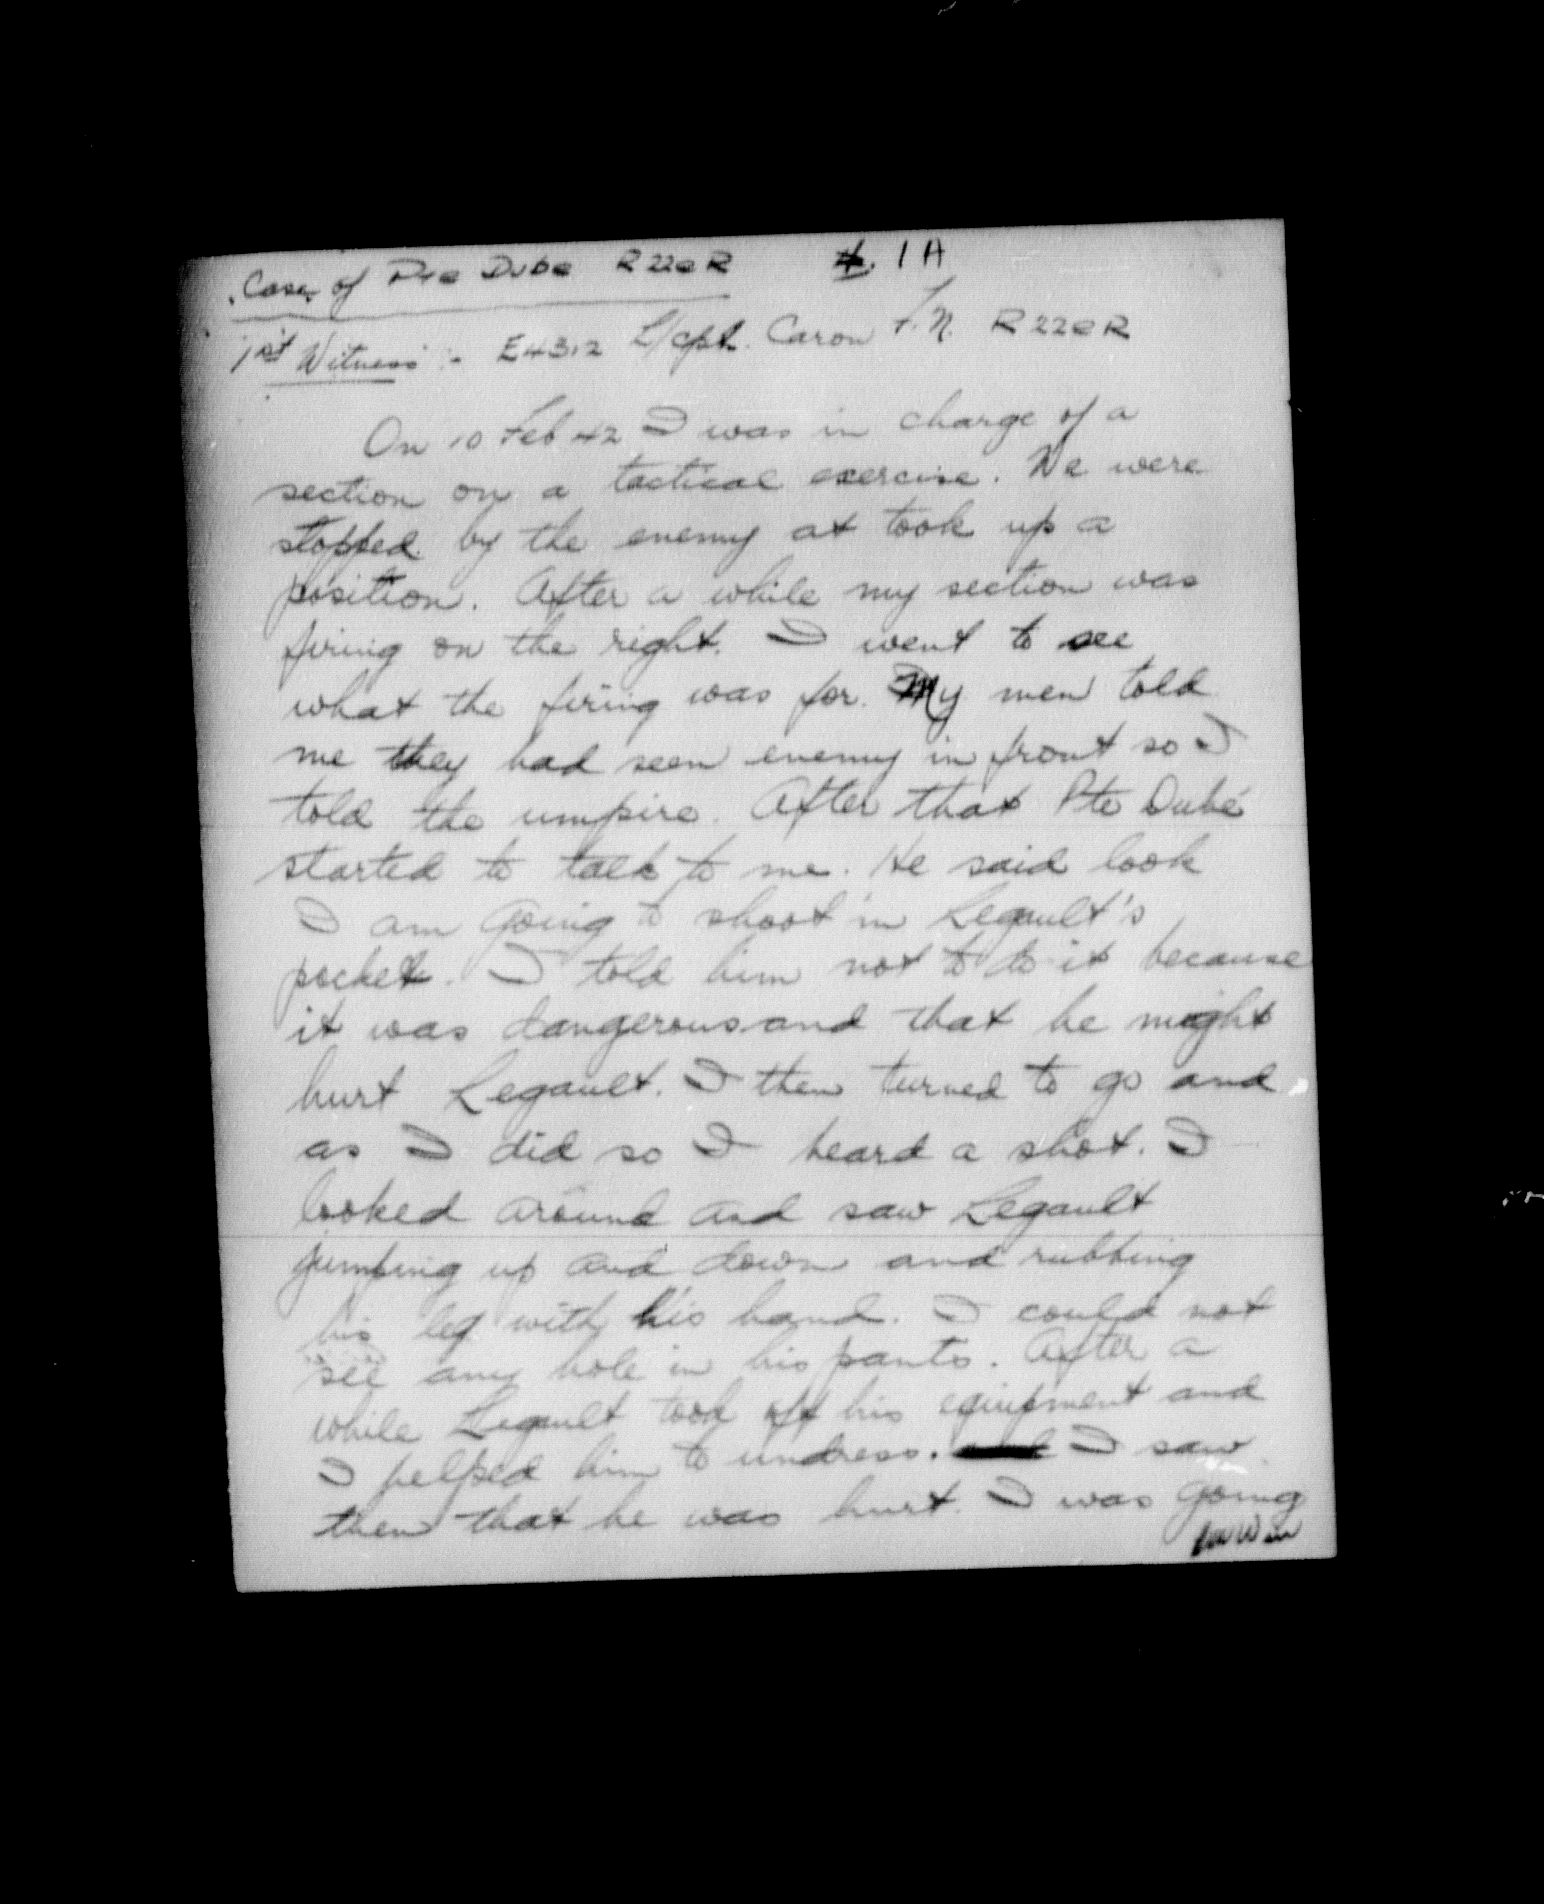 Case of Pte Dube R22eR 1A
1st Witness :- E4312 L/Cpl. Caron F.N. R22eR
On 10 Feb 42 I was in charge of a
section on a tactical exercise. We were
stopped by the enemy at took up a
position. After a while my section was
firing on the right. I went to see
what the firing was for. My men told
me they had seen enemy in front so I
told the umpire. After that Pte Dubé
started to talk to me. He said look
I am going to shoot in Legault's
pocket. I told him not to do it because
it was dangerous and that he might
hurt Legault. I then turned to go and
as I did so I heard a shot. I
looked around and saw Legault
jumping up and down and rubbing
his leg with his hand. I could not
see any hole in his pants. After a
while Legault took off his equipment and
I helped him to undress. I saw
then that he was hurt. I was going